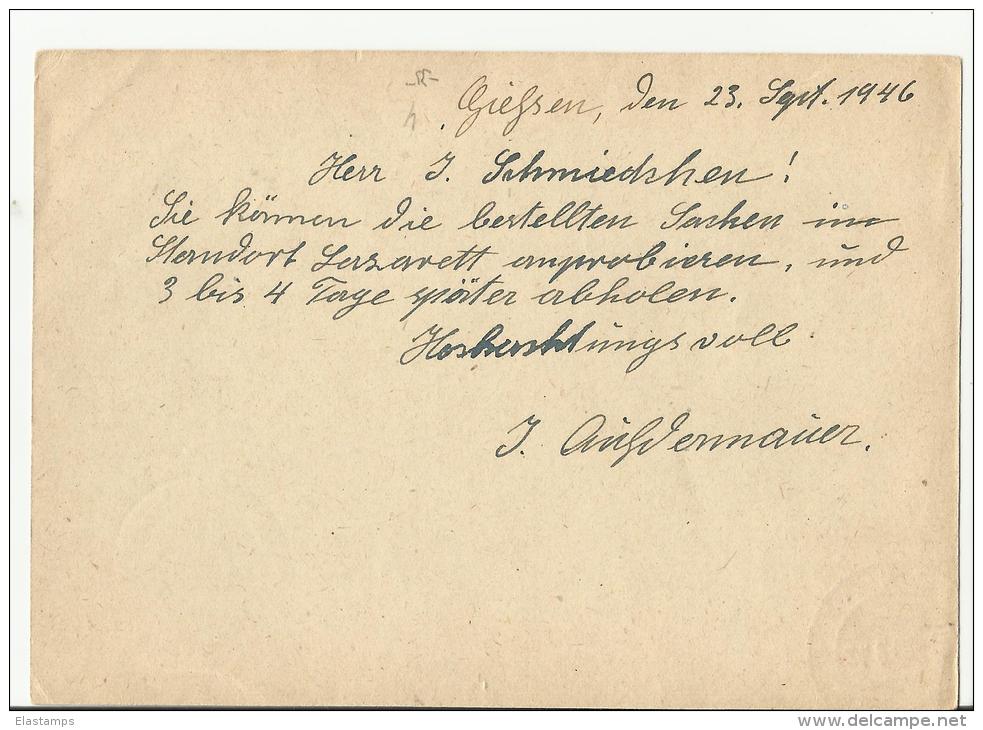 Gießen, den 23. Sept. 1946
Herr J. Schmiedchen!
Sie können die bestellten Sachen im
Standort Lazarett anprobieren, und
3 bis 4 Tage später abholen.
Hochachtungsvoll
J. Aufdermauer.
Elastamps
www.delcampe.net